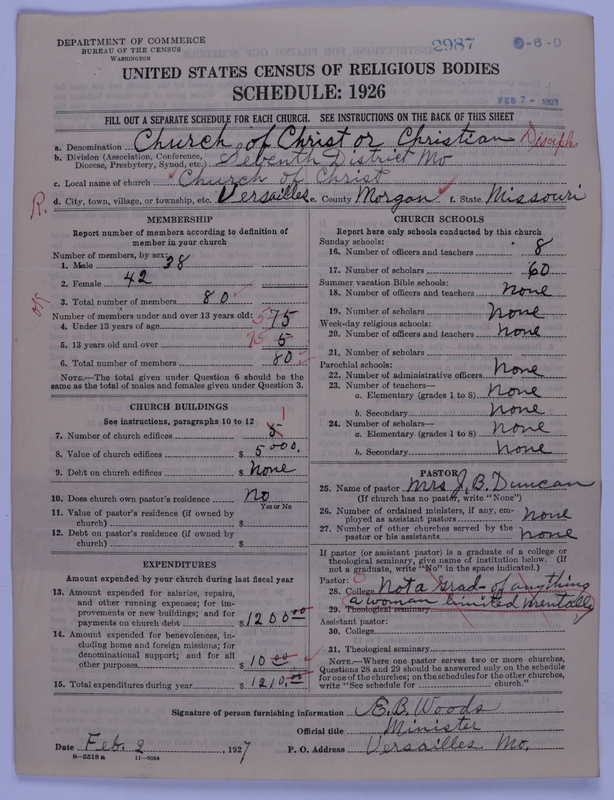 DEPARTMENT OF COMMERCE
BUREAU OF THE CENSUS
WASHINGTON
2987
0-6-0
UNITED STATES CENSUS OF RELIGIOUS BODIES
SCHEDULE: 1926
FEB 7 - 1927
FILL OUT A SEPARATE SCHEDULE FOR EACH CHURCH. SEE INSTRUCTIONS ON THE BACK OF THIS SHEET
a. Denomination Church of Christ or Christian Disciples
b. Division (Association, Conference, Diocese, Presbytery, Synod, etc.) Seventh District Mo
c. Local name of church Church of Christ
d. City, town, village, or township, etc. Versailles e. County Morgan f. State Missouri
R.
ok
MEMBERSHIP
Report number of members according to definition of member in your church
Number of members, by sex:
1. Male 38
2. Female 42
3. Total number of members 80
Number of members under and over 13 years old:
4. Under 13 years of age 5 75
5. 13 years old and over 75 5
6. Total number of members 80
NOTE.—The total given under Question 6 should be the same as the total of males and females given under Question 3.
CHURCH BUILDINGS
See instructions, paragraphs 10 to 12
1
7. Number of church edifices 5
8. Value of church edifices $ 5000.
9. Debt on church edifices $ None
10. Does church own pastor's residence No
Yes or No
11. Value of pastor's residence (if owned by church) $
12. Debt on pastor's residence (if owned by church) $
EXPENDITURES
Amount expended by your church during last fiscal year
13. Amount expended for salaries, repairs, and other running expenses; for improvements or new buildings; and for payments on church debt $ 1200.00
14. Amount expended for benevolences, including home and foreign missions; for denominational support; and for all other purposes $ 10.00
15. Total expenditures during year $ 1210.00
CHURCH SCHOOLS
Report here only schools conducted by this church
Sunday schools:
16. Number of officers and teachers 8
17. Number of scholars 60
Summer vacation Bible schools:
18. Number of officers and teachers none
19. Number of scholars None
Week-day religious schools:
20. Number of officers and teachers None
21. Number of scholars
Parochial schools:
22. Number of administrative officers None
23. Number of teachers—
a. Elementary (grades 1 to 8) None
b. Secondary None
24. Number of scholars—
a. Elementary (grades 1 to 8) None
b. Secondary None
PASTOR
25. Name of pastor Mrs J. B. Duncan
(If church has no pastor, write "None")
26. Number of ordained ministers, if any, employed as assistant pastors none
27. Number of other churches served by the pastor or his assistants none
If pastor (or assistant pastor) is a graduate of a college or theological seminary, give name of institution below. (If not a graduate, write "No" in the space indicated.)
Pastor:
28. College Not a Grad- of anything
29. Theological seminary a woman limited mentally
Assistant pastor:
30. College
31. Theological seminary
NOTE.—Where one pastor serves two or more churches, Questions 28 and 29 should be answered only on the schedule for one of the churches; on the schedules for the other churches, write "See schedule for church."
Signature of person furnishing information E. B. Woods
Official title Minister
Date Feb. 2, 1927 P. O. Address Versailles Mo.
8—5518 a 11—9054